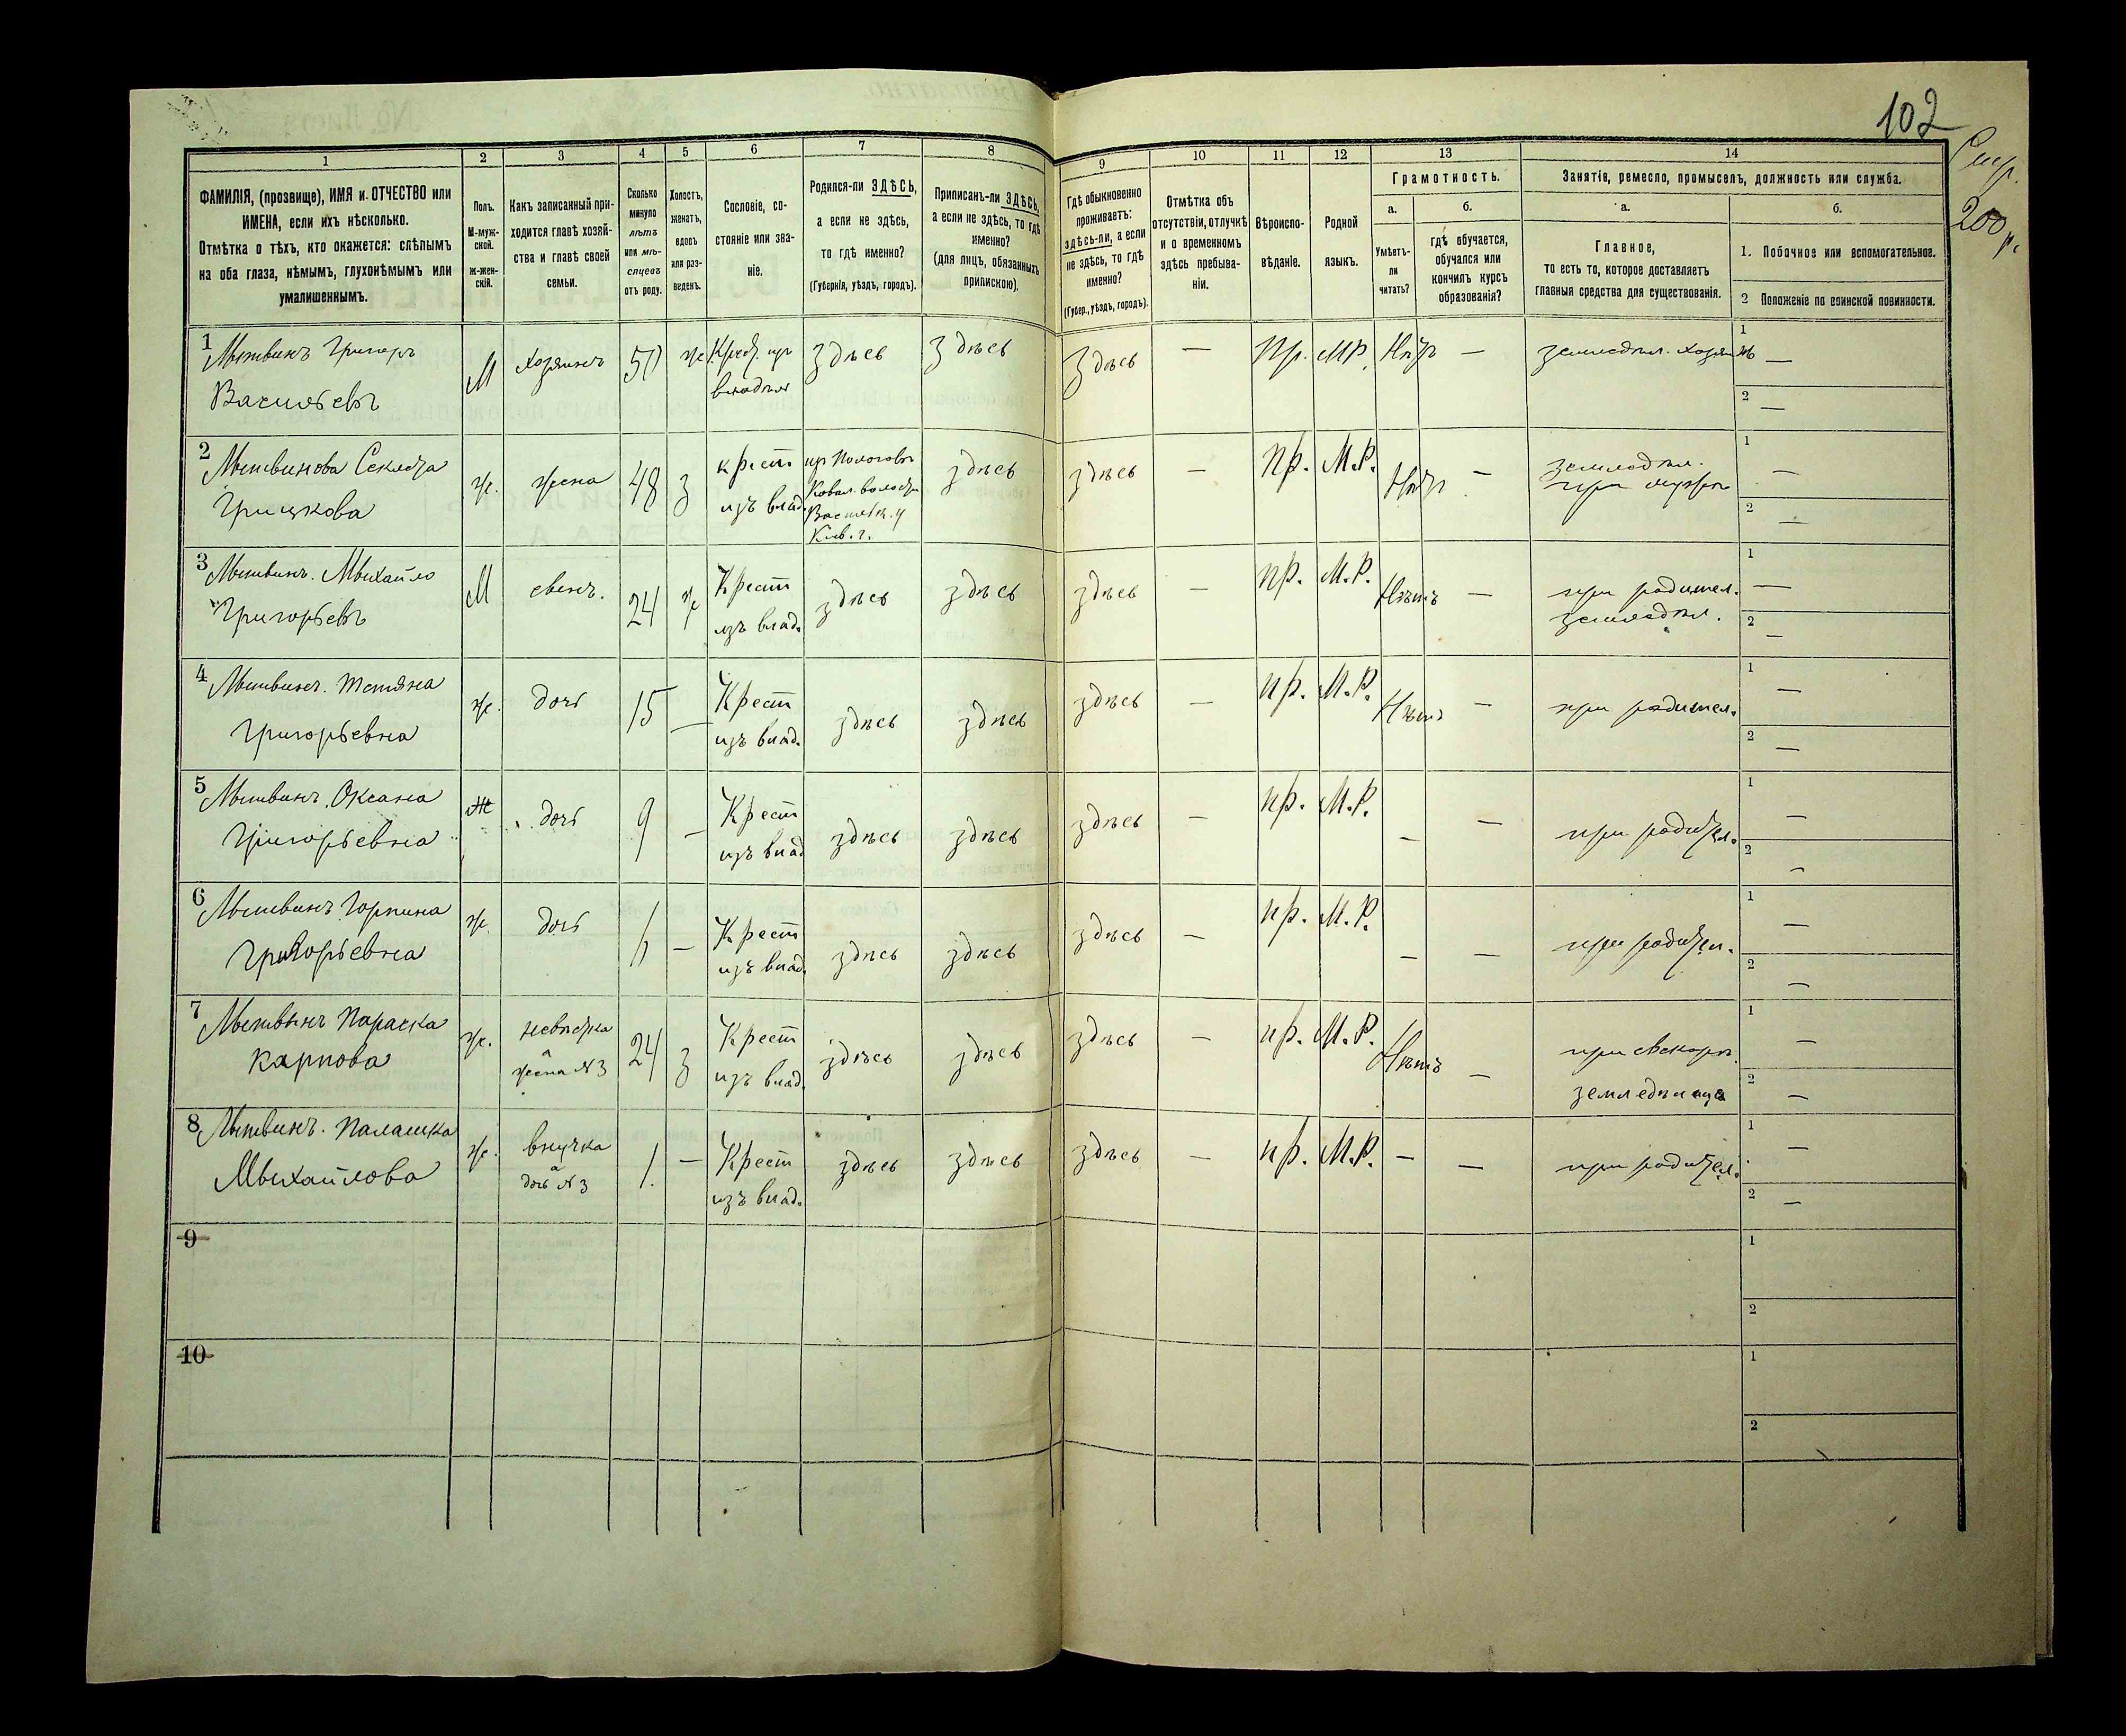 102
Стр.
200 р.
1 2 3 4 5 6 7 8 9 10 11 12 13 14
ФАМИЛІЯ, (прозвище), ИМЯ и ОТЧЕСТВО или
ИМЕНА, если ихъ нѣсколько.
Отмѣтка о тѣхъ, кто окажется: слѣпымъ
на оба глаза, нѣмымъ, глухонѣмымъ или
умалишеннымъ.
Полъ.
М-муж-
ской.
ж-жен-
скій.
Какъ записанный при-
ходится главѣ хозяй-
ства и главѣ своей
семьи.
Сколько
минуло
лѣтъ
или мѣ-
сяцевъ
отъ роду.
Холостъ,
женатъ,
вдовъ
или раз-
веденъ.
Сословіе, со-
стояніе или зва-
ніе.
Родился-ли ЗДѢСЬ,
а если не здѣсь,
то гдѣ именно?
(Губернія, уѣздъ, городъ).
Приписанъ-ли ЗДѢСЬ,
а если не здѣсь, то гдѣ
именно?
(для лицъ, обязанныхъ
припискою).
Гдѣ обыкновенно
проживаетъ:
здѣсь-ли, а если
не здѣсь, то гдѣ
именно?
(Губер., уѣздъ, городъ).
Отмѣтка объ
отсутствіи, отлучкѣ
и о временномъ
здѣсь пребыва-
ніи.
Вѣроиспо-
вѣданіе.
Родной
языкъ.
Грамотность.
а.
Умѣетъ-
ли
читать?
б.
гдѣ обучается,
обучался или
кончилъ курсъ
образованія?
Занятіе, ремесло, промыселъ, должность или служба.
а.
Главное,
то есть то, которое доставляетъ
главныя средства для существованія.
б.
1. Побочное или вспомогательное.
2 Положеніе по воинской повинности.
1
Мытвинъ Григоръ
Васильевъ
М
хозяинъ
50
ж
Крест. изъ
владѣл
Здѣсь
Здѣсь
Здѣсь
—
Пр.
МР.
Нѣтъ
—
земледѣл. хозяинъ
1 —
2 —
2
Мытвинова Секлета
Грицкова
ж.
жена
48
З
крест
изъ влад.
Ковал. волости
Васильк. у
Кіев. г.
здѣсь
здѣсь
—
пр.
М.Р.
Нѣтъ
—
земледѣл.
при мужѣ
1 —
2 —
3
Мытвинъ. Мыхайло
Григорьевъ
М
сынъ.
24
ж
Крест
изъ влад.
здѣсь
здѣсь
здѣсь
—
пр.
М.Р.
Нѣтъ
—
при родител.
земледѣл.
1 —
2 —
4
Мытвинъ. Тетяна
Григорьевна
ж.
дочь
15
—
Крест
изъ влад.
здѣсь
здѣсь
здѣсь
—
пр.
М.Р.
Нѣтъ
—
при родител.
1 —
2 —
5
Мытвинъ. Оксана
Григорьевна
Ж
дочь
9
—
Крест
изъ влад
здѣсь
здѣсь
здѣсь
—
пр.
М.Р.
—
—
при родител.
1 —
2 —
6
Мытвинъ. Горпина
Григорьевна
ж.
дочь
—
Крест
изъ влад.
здѣсь
здѣсь
здѣсь
—
пр.
М.Р.
—
—
при родител.
1 —
2 —
7
Мытвинъ Параска
Карпова
ж.
невѣстка
а
жена №3
24
З
Крест
изъ влад.
здѣсь
здѣсь
здѣсь
—
пр.
М.Р.
Нѣтъ
—
при свекорѣ
1 —
2 —
8
Мытвинъ. Палашка
Мыхайлова
ж.
внучка
а
дочь №3
1.
—
Крест
изъ влад.
здѣсь
здѣсь
здѣсь
—
пр.
М.Р.
—
—
при родител.
1 —
2 —
9
1
2
10
1
2